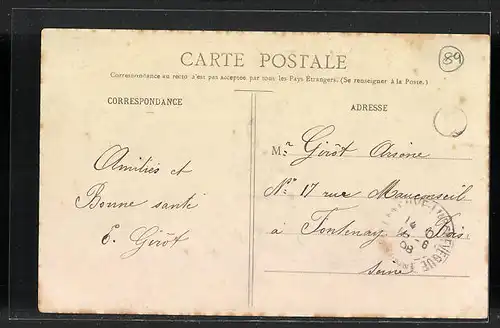 89
CARTE POSTALE
Correspondance au recto n'est pas acceptée par tous les Pays Étrangers. (Se renseigner à la Poste.)
CORRESPONDANCE
ADRESSE
Amitiés et
Bonne santé
E. Girôt
Mr Girôt Arsène
No 17 rue Mauconseil
à Fontenay s Bois
Seine
14
6
08